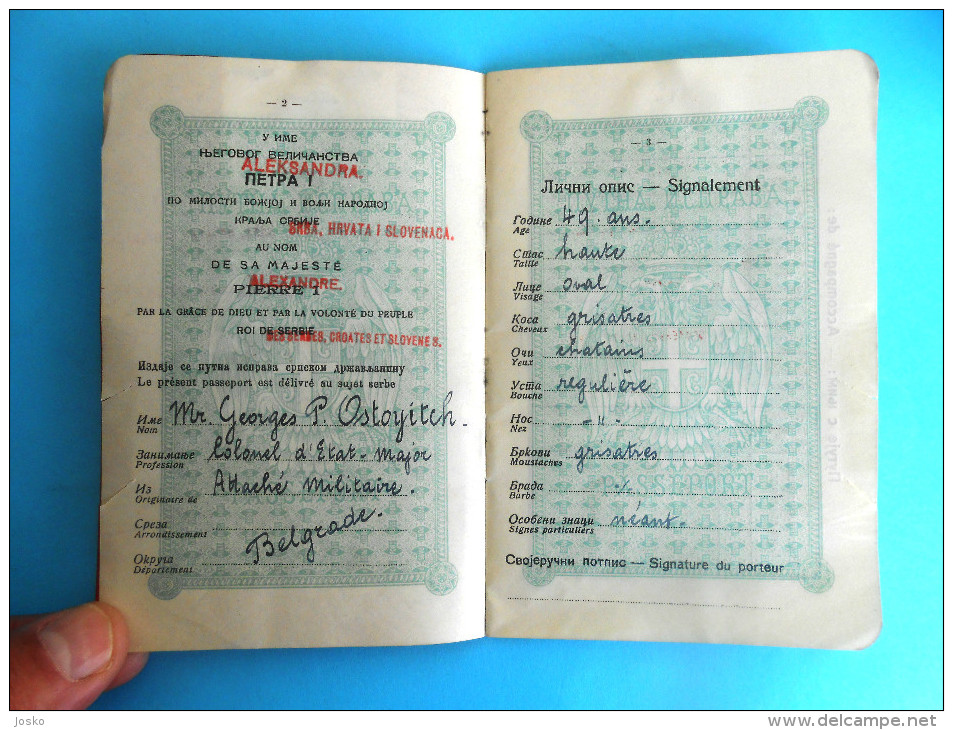 — 2 —
У ИМЕ
ЊЕГОВОГ ВЕЛИЧАНСТВА
ALEKSANDRA.
ПЕТРА I
ПО МИЛОСТИ БОЖЈОЈ И ВОЉИ НАРОДНОЈ
КРАЉА СРБИЈЕ
SRBA, HRVATA I SLOVENACA.
AU NOM
DE SA MAJESTÉ
ALEXANDRE.
PIERRE I
PAR LA GRÂCE DE DIEU ET PAR LA VOLONTÉ DU PEUPLE
ROI DE SERBIE
DES SERBES, CROATES ET SLOVENES.
Издаје се путна исправа српском држављанину
Le présent passeport est délivré au sujet serbe
Име Mr. Georges P. Ostoyitch.
Nom
Занимање Colonel d'État-Major
Profession
Из Attaché Militaire.
Originaire de
Среза
Arrondissement
Belgrade.
Округа
Département
— 3 —
Лични опис — Signalement
Године 49. ans.
Age
Стас haute
Taille
Лице oval
Visage
Коса grisatres
Cheveux
Очи chatains
Yeux
Уста regulière
Bouche
Нос -"-
Nez
Бркови grisatres
Moustaches
Брада
Barbe
Особени знаци néant.
Signes particuliers
PASSEPORT
Својеручни потпис — Signature du porteur
Josko
www.delcampe.net